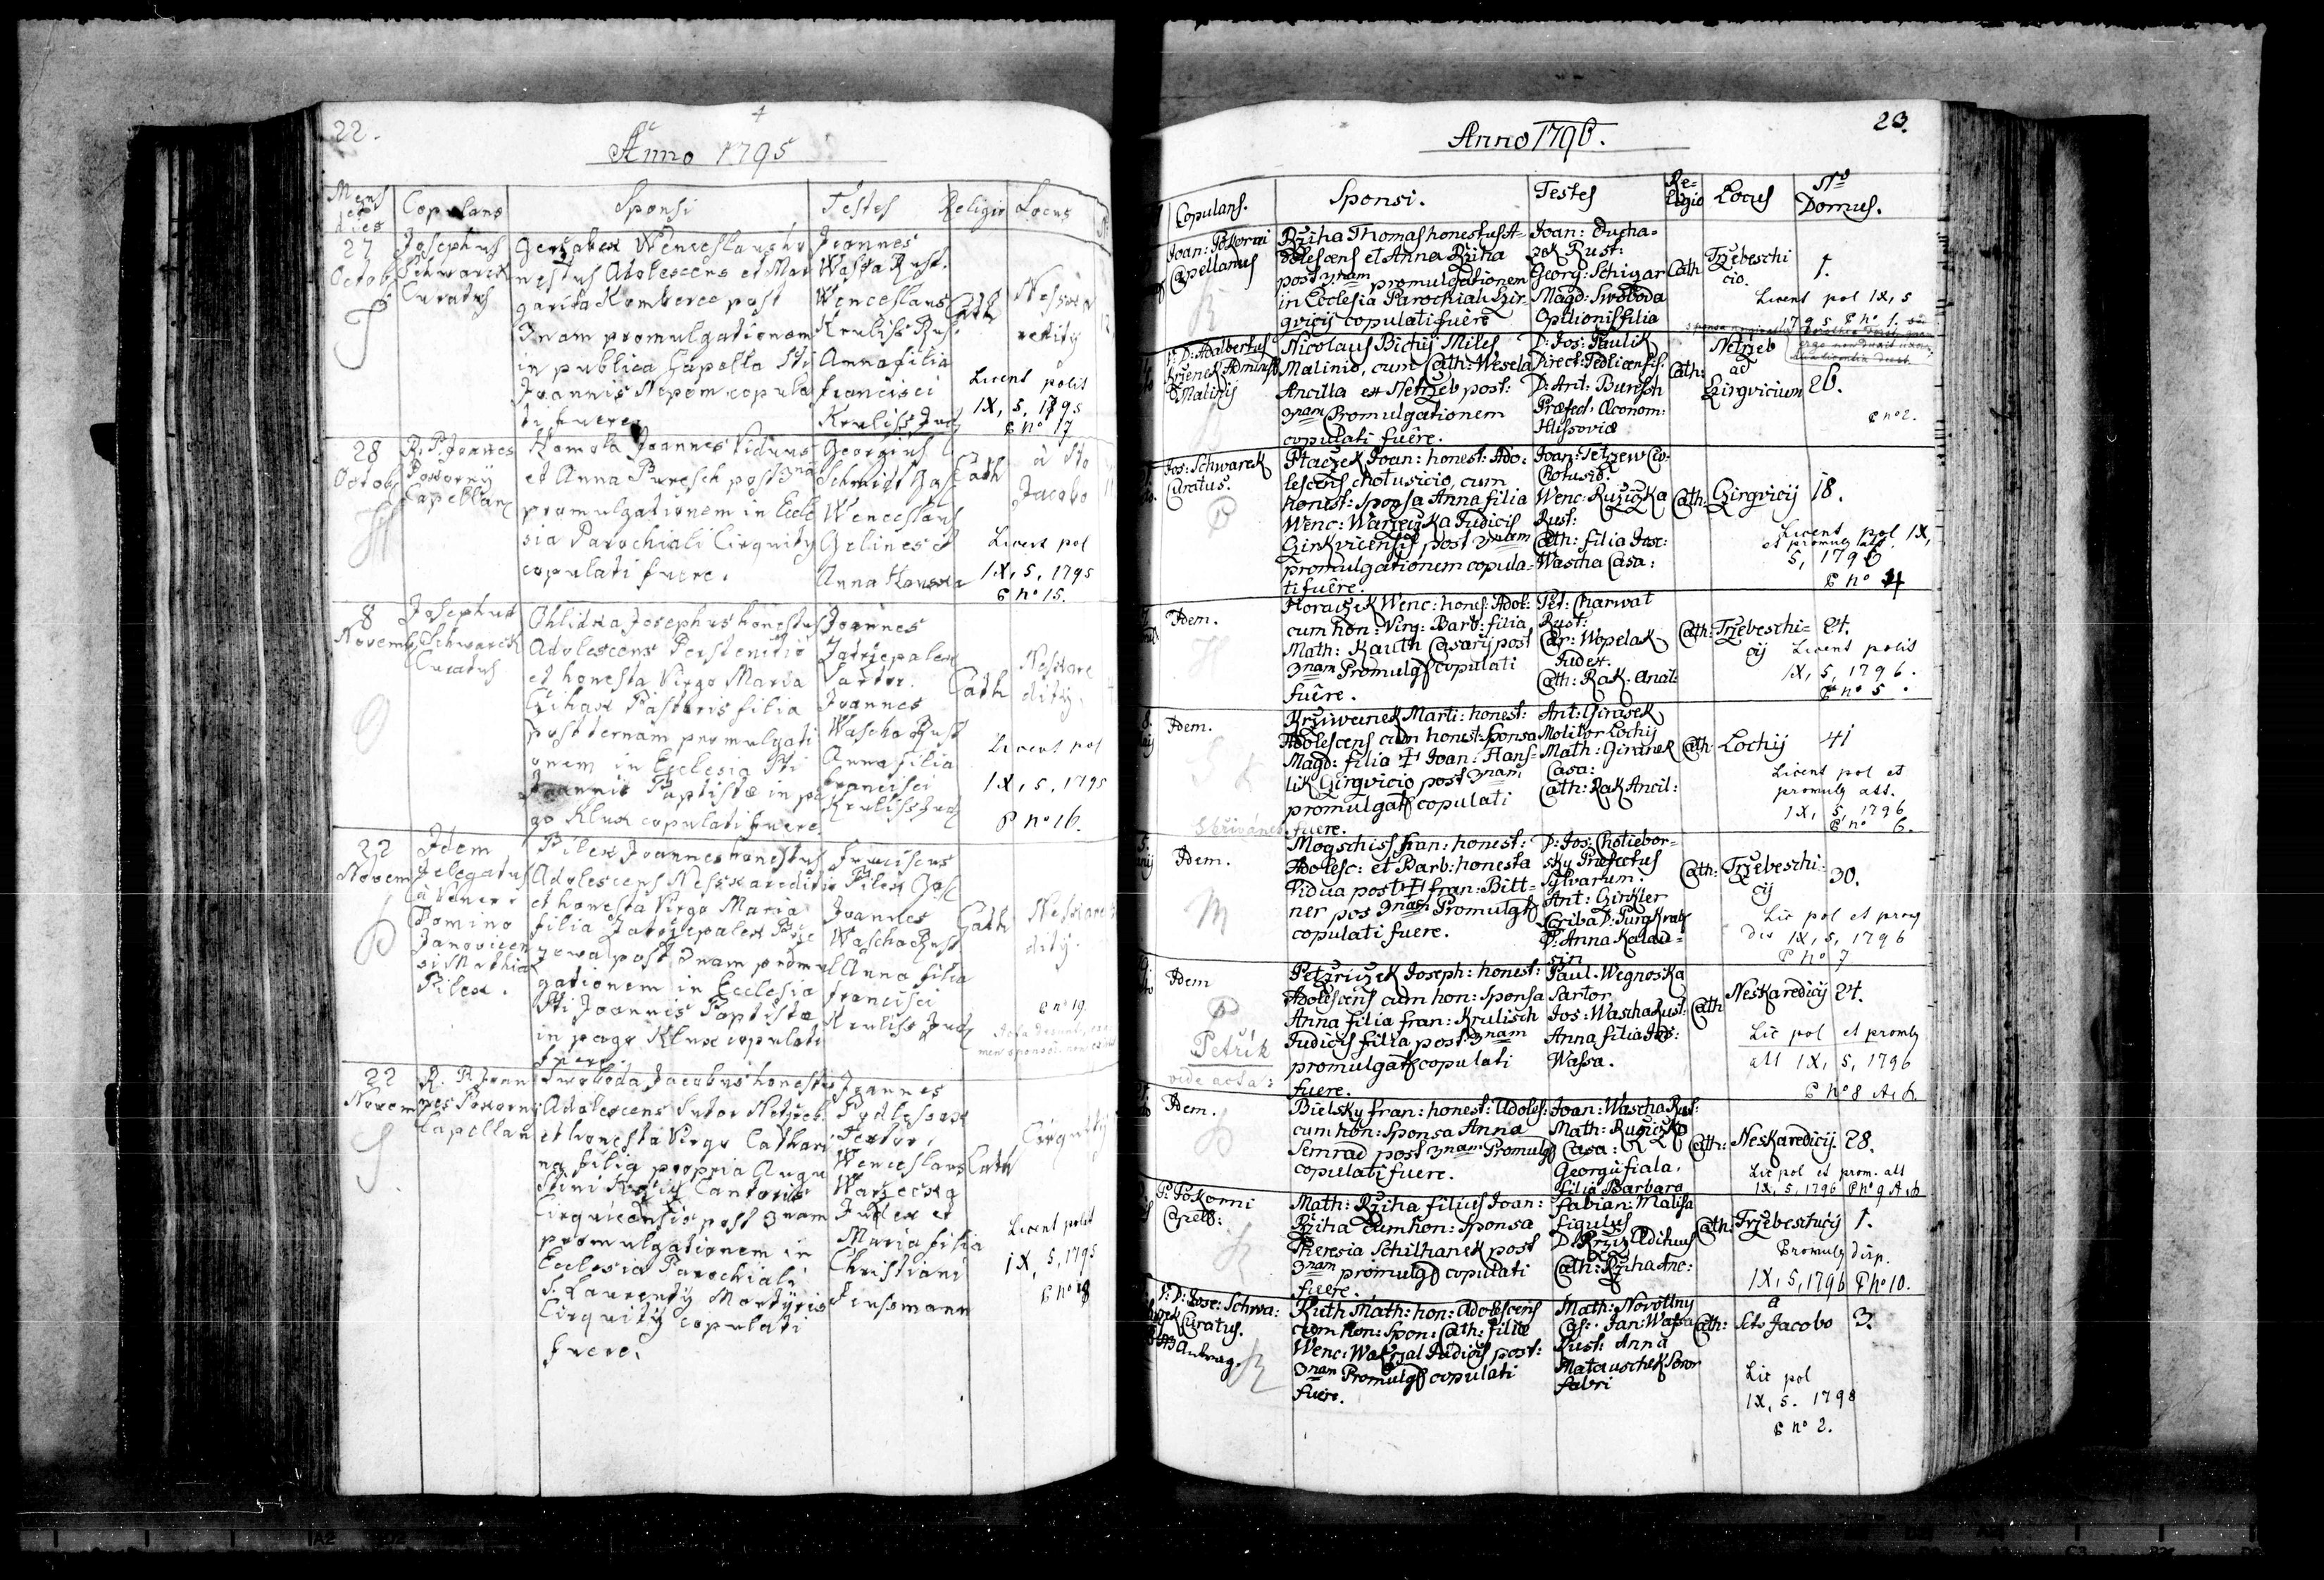 22.
Anno 1795
Mens et dies
Copulans
Sponsi
Testes
Religio
Locus
27
Octob
Josephus
Schwarek
Curatus
Wenceslaus ho
nestus Adolescens et Mar
garita post
3nam promulgationem
in publica Capella Sti
Joannis Nepom copula
ti fuere.
Joannes
Wassa Rust.
Wenceslaus
Kruliss Rus.
Anna filia
Francisci
Kruliss Jud
Cath
Neska
redity
Licent polit
IX, 5, 1795
E no 17
28
Octob
R. P. Joannes
Pokorny
Capellan
Joannes Viduus
et Anna Puresch post 3nam
promulgationem in Eccle
sia Parochiali Cirquity
copulati fuere.
Georgius
Schmidt Cas
Wenceslaus
Gelinek et
Anna
Cath
à Sto
Jacobo
Licent pol
IX, 5, 1795
E no 15.
8
Novemb
Josephus
Schwarek
Curatus
Ohlidka Josephus honestus
Adolescens
et honesta Virgo Maria
Czihak Pastoris filia
post ternam promulgati
onem in Ecclesia Sti
Joannis Baptistæ in pa
go Kluk copulati fuere.
Joannes
Sartor.
Joannes
Wascha Rust
Anna filia
Francisci
Kruliss Jud
Cath
Neskare
dity.
Licent pol
IX, 5, 1795
E no 16.
22
Novem
Idem
Delegatus
à Vener.
Domino
Janovicen
si Mathia
Pilek.
Pilek Joannes honestus
Adolescens Nesskareditio
et honesta Virgo Maria
filia
post 3nam promul
gationem in Ecclesia
Sti Joannis Baptistæ
in pago Kluk copulati
fuere.
Franciscus
Pilek Cas
Joannes
Wascha Rust
Anna filia
Francisci
Kruliss Jud
Cath
Neskare
dity.
E no 19
22
Novem
R. P. Joan
nes Pokorny
Capellan
Swoboda Jacobus honestus
Adolescens Sutor Netrzeb.
et honesta Virgo Cathari
na filia propria Augu
stini Cantoris
Cirquicensis post 3nam
promulgationem in
Ecclesia Parochiali
S. Laurenty Martyris
Cirquity copulati
fuere.
Joannes
Textor,
Wenceslaus
Warzecka
Judex et
Maria filia
Christiani
Jensmann
Cath
Cirquity
Licent polit
IX, 5, 1795
E no 18
23.
Anno 1796.
Copulans.
Sponsi.
Testes
Re-
ligio
Locus
Nro
Domus.
Joan: Pokorni
Capellanus
Rziha Thomas honestus A-
dolescens et Anna Rziha
post 3nam promulgationem
in Ecclesia Parochiali Zir-
qvicij copulati fuêre
Joan: Ducha-
zek Rust:
Georg: Schigar
Magd: Swoboda
Opilionis filia
Cath
Trzebeschi
cio.
1.
Licent pol IX, 5
1795 E no 1.
P: D: Adalbertus
Malinij
Nicolaus Bichij Miles
Malinio, cum Cath: Wesela
Ancilla ex Netrzeb post:
3nam Promulgationem
copulati fuêre.
D: Jos: Paulik
Direct: Sedlicensis.
D: Ant: Buresch
Præfect: Œconom:
Hlisoviæ
Cath:
Netrzeb
ad
Zirqvicium
26.
E no 2.
Jos: Schwarek
Curatus.
Ptaczek Joan: honest: Ado-
lescens Chotusicio, cum
honest: Sponsa Anna filia
Wenc: Warzeczka Judicis
Zirkvicensis post 3nam
promulgationem copula-
ti fuêre.
Joan: Petrzew
Chotusic.
Wenc: Ruziczka
Rust:
Cath: filia Jose:
Wascha Casa:
Cath:
Zirqvicij
18.
Licent pol IX,
et promulg att.
5, 1796
E no 4
Idem.
Horaczek Wenc: hones: Adol:
cum hon: Virg: Barb: filia
Math: Kauth Casarij post
3nam Promulg copulati
fuêre.
Pet: Charwat
Rust:
Car: Wopelak
Judex.
Cath: Rak. Ancil:
Cath:
Trzebeschi-
cij
24.
Licent polit
IX, 5, 1796.
E no 5.
Idem.
Skřivánek
Krziwanek Marti: honest:
Adolescens cum honest: Sponsa
Magd: filia ‡ Joan: Hans-
lik Zirqvicio post 3nam
promulgat copulati
fuere.
Ant: Girasek
Molitor Lochij
Math: Girasek
Casa:
Cath: Rak Ancil:
Cath
Lochij
41
Licent pol et
promulg att.
IX, 5, 1796
E no 6.
Idem.
Mogschiss Fran: honest:
Adolesc: et Barb: honesta
Vidua post ‡ Fran: Bitt-
ner pos 3nam Promulg
copulati fuere.
D: Jos: Chotiebor-
sky Præfectus
Sylvarum.
Ant: Zinkler
Scriba D: Purgkrab
D: Anna Kalau-
sin
Cath:
Trzebeschi-
cij
30.
Lic pol et prom
IX, 5, 1796
E no 7
Idem
Petřík
vide acta:
Petrziczek Joseph: honest:
Adolescens cum hon: Sponsa
Anna filia Fran: Krulisch
Judicis filia post 3nam
promulgat copulati
fuere.
Paul. Wegnoska
Sartor
Jos: Wascha Rust:
Anna filia Jos:
Wassa.
Cath
Neskaredicij
24.
Lic pol et promlg
att IX, 5, 1796
E no 8 A, b
Idem.
Bielsky Fran: honest: Adoles:
cum hon: Sponsa Anna
Semrad post 3nam Promulg
copulati fuere.
Joan: Wascha Rus:
Math: Ruziczka
Casa:
Georgii Fiala,
filia Barbara
Cath:
Neskaredicij.
28.
Lic pol et prom. att
IX, 5, 1796 E no 9 A, b
P: Pokorni
Capell:
Math: Rziha filius Joan:
Rziha cum hon: Sponsa
Theresia Schilhanek post
3nam promulg copulati
fuere.
Fabian: Malisa
Figulus
Ædituus
Cath: Rziha Anc:
Cath:
Trzebestucij
1.
Promulg disp.
IX, 5, 1796 E no 10.
P: D: Jose: Schwa-
rek Curatus.
Ruth Math: hon: Adolescens
cum hon: Spon: Cath: filia
Wenc: Judicis post:
3nam Promulg copulati
fuere.
Math: Novottny
Cas: Jan: Wassa
Rust: Anna
Matauschek Soror
fabri
Cath:
a
Sto Jacobo
3.
Lic pol
IX, 5. 1798
E no 2.